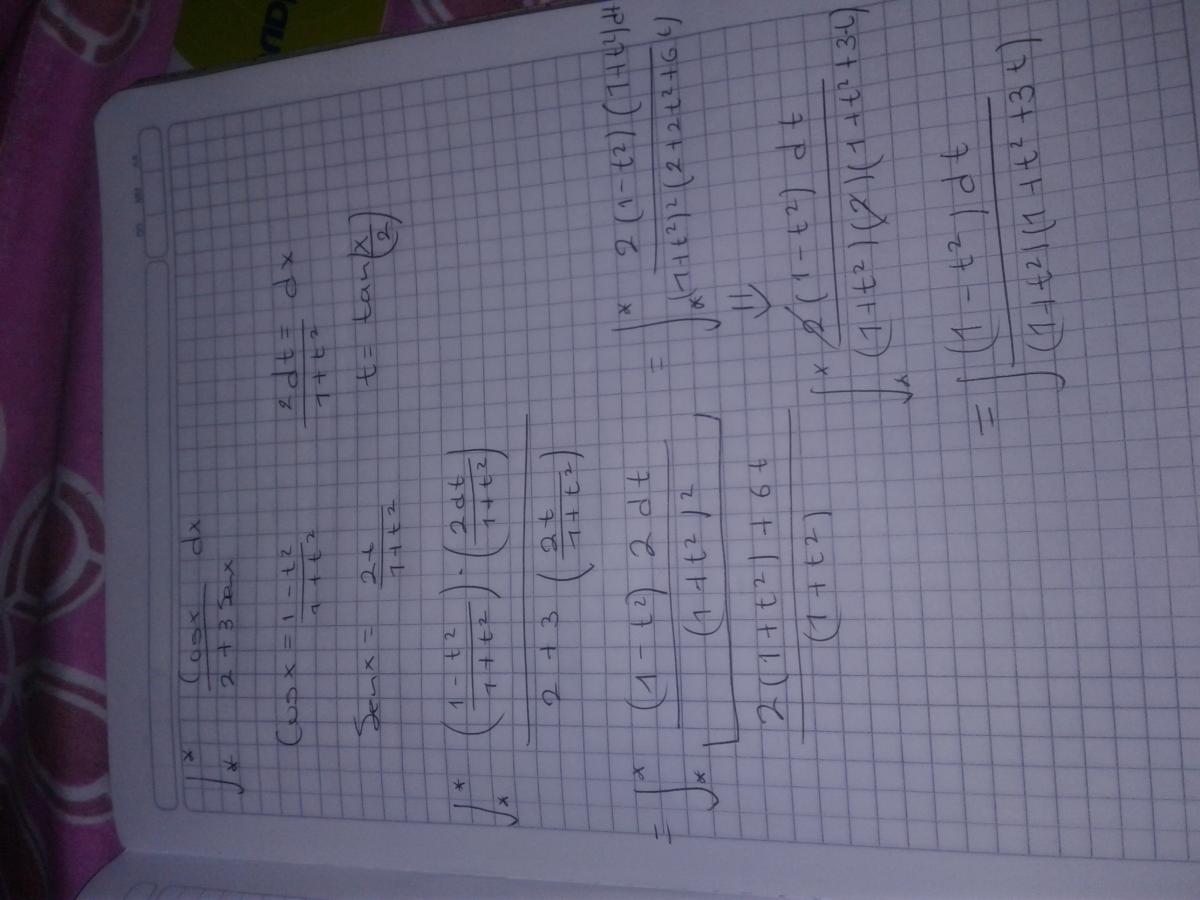 ∫ₓˣ Cosx / (2 + 3 Senx) dx
Cosx = (1 - t²) / (1 + t²)    2dt / (1 + t²) = dx
Senx = 2t / (1 + t²)    t = tan(x/2)
∫ₓˣ ((1 - t²) / (1 + t²)) · (2dt / (1 + t²)) / (2 + 3 (2t / (1 + t²)))
= ∫ₓˣ [(1 - t²) 2dt / (1 + t²)²] / [(2(1 + t²) + 6t) / (1 + t²)] = ∫ₓˣ 2(1 - t²)(1 + t²)dt / (1 + t²)²(2 + 2t² + 6t)
⇓
∫ₓˣ 2(1 - t²) dt / (1 + t²)(2)(1 + t² + 3t)
= ∫ (1 - t²) dt / (1 + t²)(1 + t² + 3t)